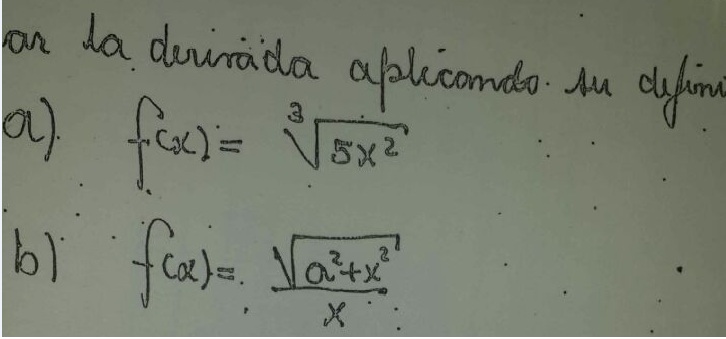 ar la derivada aplicando su defini
a) f(x) = ∛5x²
b) f(x) = √a²+x² / x